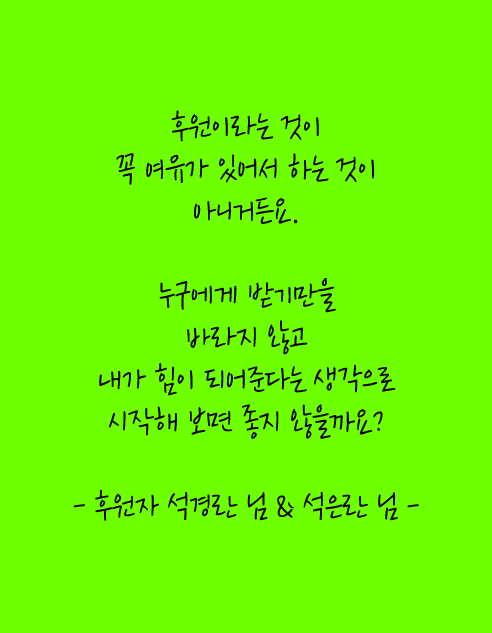 후원이라는 것이
꼭 여유가 있어서 하는 것이
아니거든요.
누구에게 받기만을
바라지 않고
내가 힘이 되어준다는 생각으로
시작해 보면 좋지 않을까요?
- 후원자 석경란 님 & 석은란 님 -